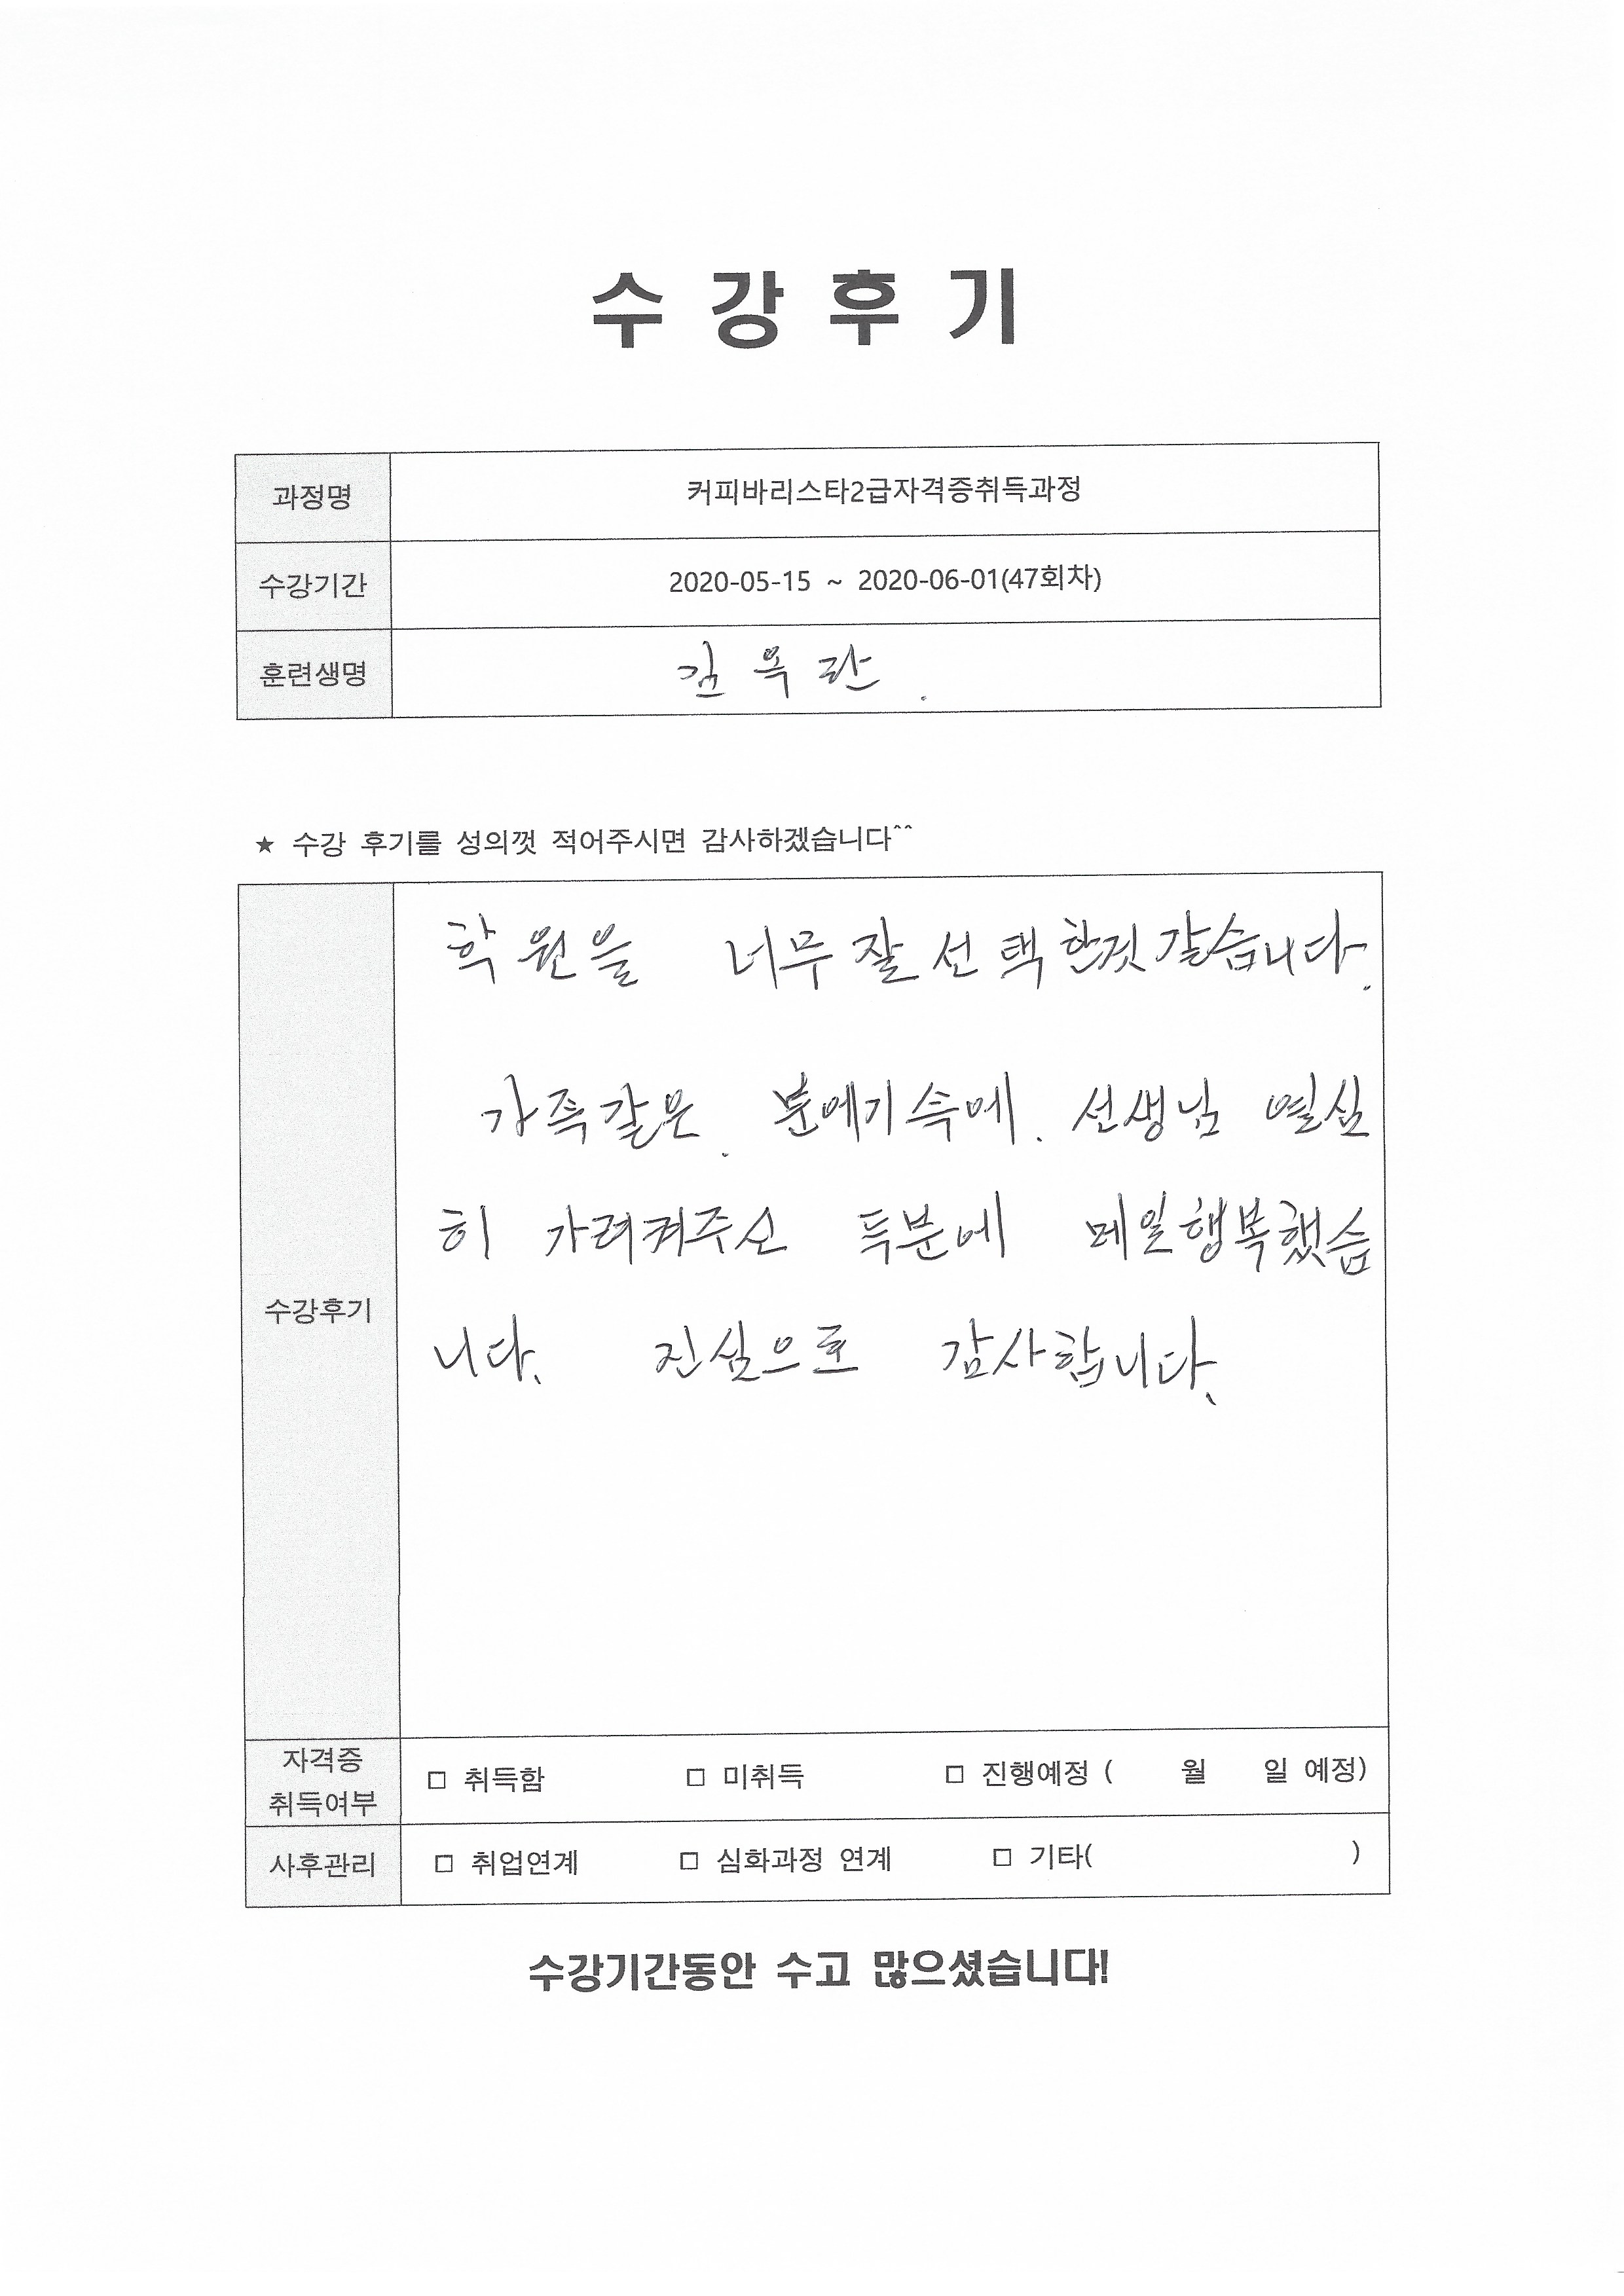 수 강 후 기
과정명 커피바리스타2급자격증취득과정
수강기간 2020-05-15 ~ 2020-06-01(47회차)
훈련생명 김 옥 란 .
★ 수강 후기를 성의껏 적어주시면 감사하겠습니다^^
학원을 너무 잘 선택한것 같습니다.
가족같은. 분에기 속에. 선생님 열심
히 가려켜주신 득분에 메일행복했습
수강후기
니다. 진심으로 감사합니다.
자격증
취득여부
□ 취득함 □ 미취득 □ 진행예정 ( 월 일 예정)
사후관리 □ 취업연계 □ 심화과정 연계 □ 기타( )
수강기간동안 수고 많으셨습니다!